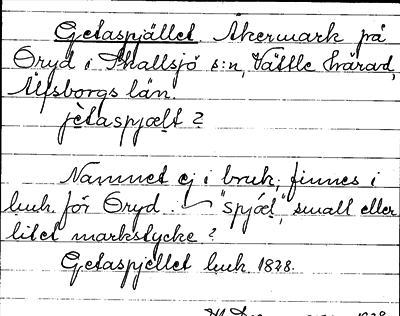 Getaspjället. Åkermark på
Öryd i Skallsjö s:n, Vättle härad,
Älfsborgs län.
jètaspjælt ?
Namnet ej i bruk, finnes i
luuk för Öryd. "spjǽl", small eller
litet markstycke ?
Getaspjellet luuk 1828.